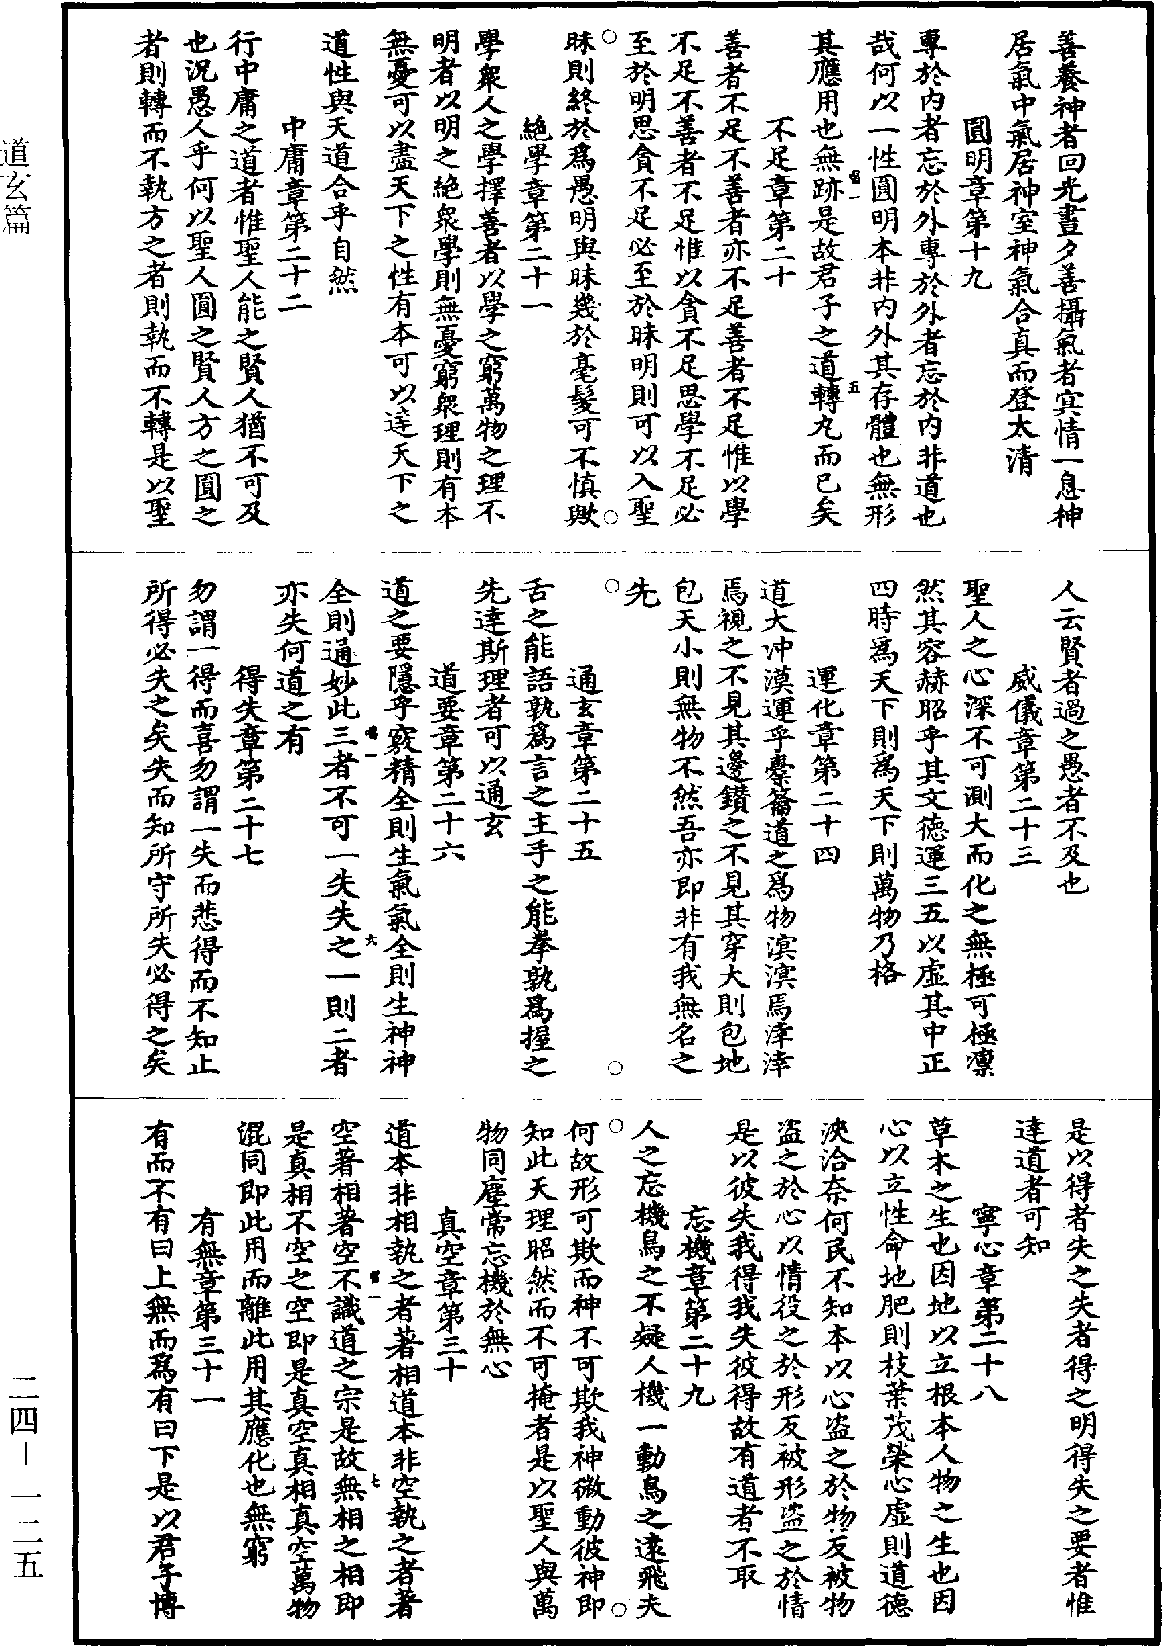 善養神者回光晝夕善攝氣者宾情一息神
居氣中氣居神室神氣合真而登太清
圓明章第十九
專於內者忘於外專於外者忘於內非道也
哉何以一性圓明本非內外其存體也無形
其應用也無跡是故君子之道轉丸而已矣
不足章第二十
善者不足不善者亦不足善者不足惟以學
不足不善者不足惟以貪不足思學不足必
至於明思貪不足必至於昧明則可以入聖
昧則終於爲愚明與昧幾於毫髮可不慎歟
絶學章第二十一
學衆人之學擇善者以學之窮萬物之理不
明者以明之絶衆學則無憂窮衆理則有本
無憂可以盡天下之性有本可以達天下之
道性與天道合乎自然
中庸章第二十二
行中庸之道者惟聖人能之賢人猶不可及
也況愚人乎何以聖人圓之賢人方之圓之
者則轉而不執方之者則執而不轉是以聖
人云賢者過之愚者不及也
威儀章第二十三
聖人之心深不可測大而化之無極可極凛
然其容赫昭乎其文德運三五以虛其中正
四時爲天下則爲天下則萬物乃格
運化章第二十四
道大冲漠運乎橐籥道之爲物溟溟焉涬涬
焉視之不見其邊鑽之不見其穿大則包地
包天小則無物不然吾亦即非有我無名之
先
通玄章第二十五
舌之能語孰爲言之主手之能拳孰爲握之
先達斯理者可以通玄
道要章第二十六
道之要隱乎竅精全則生氣氣全則生神神
全則通妙此三者不可一失失之一則二者
亦失何道之有
得失章第二十七
勿謂一得而喜勿謂一失而悲得而不知止
所得必失之矣失而知所守所失必得之矣
是以得者失之失者得之明得失之要者惟
達道者可知
寧心章第二十八
草木之生也因地以立根本人物之生也因
心以立性命地肥則枝葉茂榮心虛則道德
浹洽奈何民不知本以心盜之於物反被物
盜之於心以情役之於形反被形盜之於情
是以彼失我得我失彼得故有道者不取
忘機章第二十九
人之忘機鳥之不疑人機一動鳥之遠飛夫
何故形可欺而神不可欺我神微動彼神即
知此天理昭然而不可掩者是以聖人與萬
物同塵常忘機於無心
真空章第三十
道本非相執之者著相道本非空執之者著
空著相著空不識道之宗是故無相之相即
是真相不空之空即是真空真相真空萬物
混同即此用而離此用其應化也無窮
有無章第三十一
有而不有曰上無而爲有曰下是以君子博
道玄篇
二四－一二五